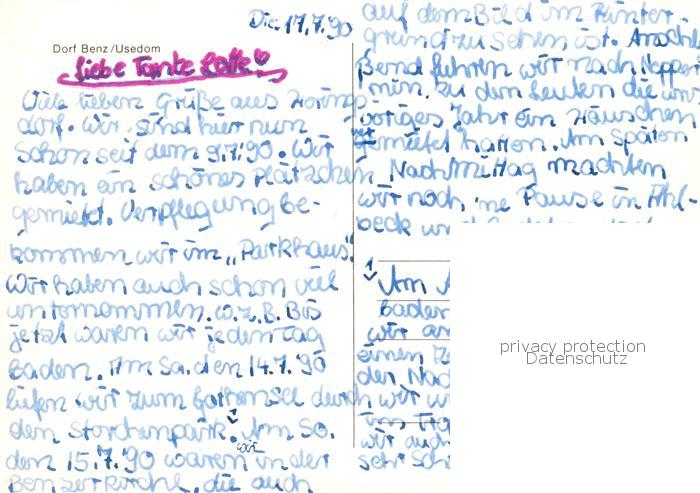 Die. 17.7.90
Dorf Benz/Usedom
Liebe Tante Lotte
Viele lieben Grüße aus
dorf. Wir sind hier nun
schon seit dem 9.7.90. Wir
haben ein schönes Plätzchen
gemietet. Verpflegung be-
kommen wir im "Parkhaus".
Wir haben auch schon viel
unternommen. W.z.B. Bis
jetzt waren wir jeden Tag
baden. Am Sa. den 14.7.90
liefen wir zum durch
den Storchenpark. 1 Am So.
den 15.7.90 waren wir in der
Benzer Kirche, die auch
auf dem Bild im Hinter-
grund zu sehen ist.
Bernd fuhren wir nach
min. zu den Leuten die uns
voriges Jahr ein Häuschen
gemietet hatten. Am späten
Nachmittag machten
wir noch 'ne Pause in Ahl-
beck
1 Am
baden
wir
einen
der
wir
im
wir auch
sehr
privacy protection
Datenschutz